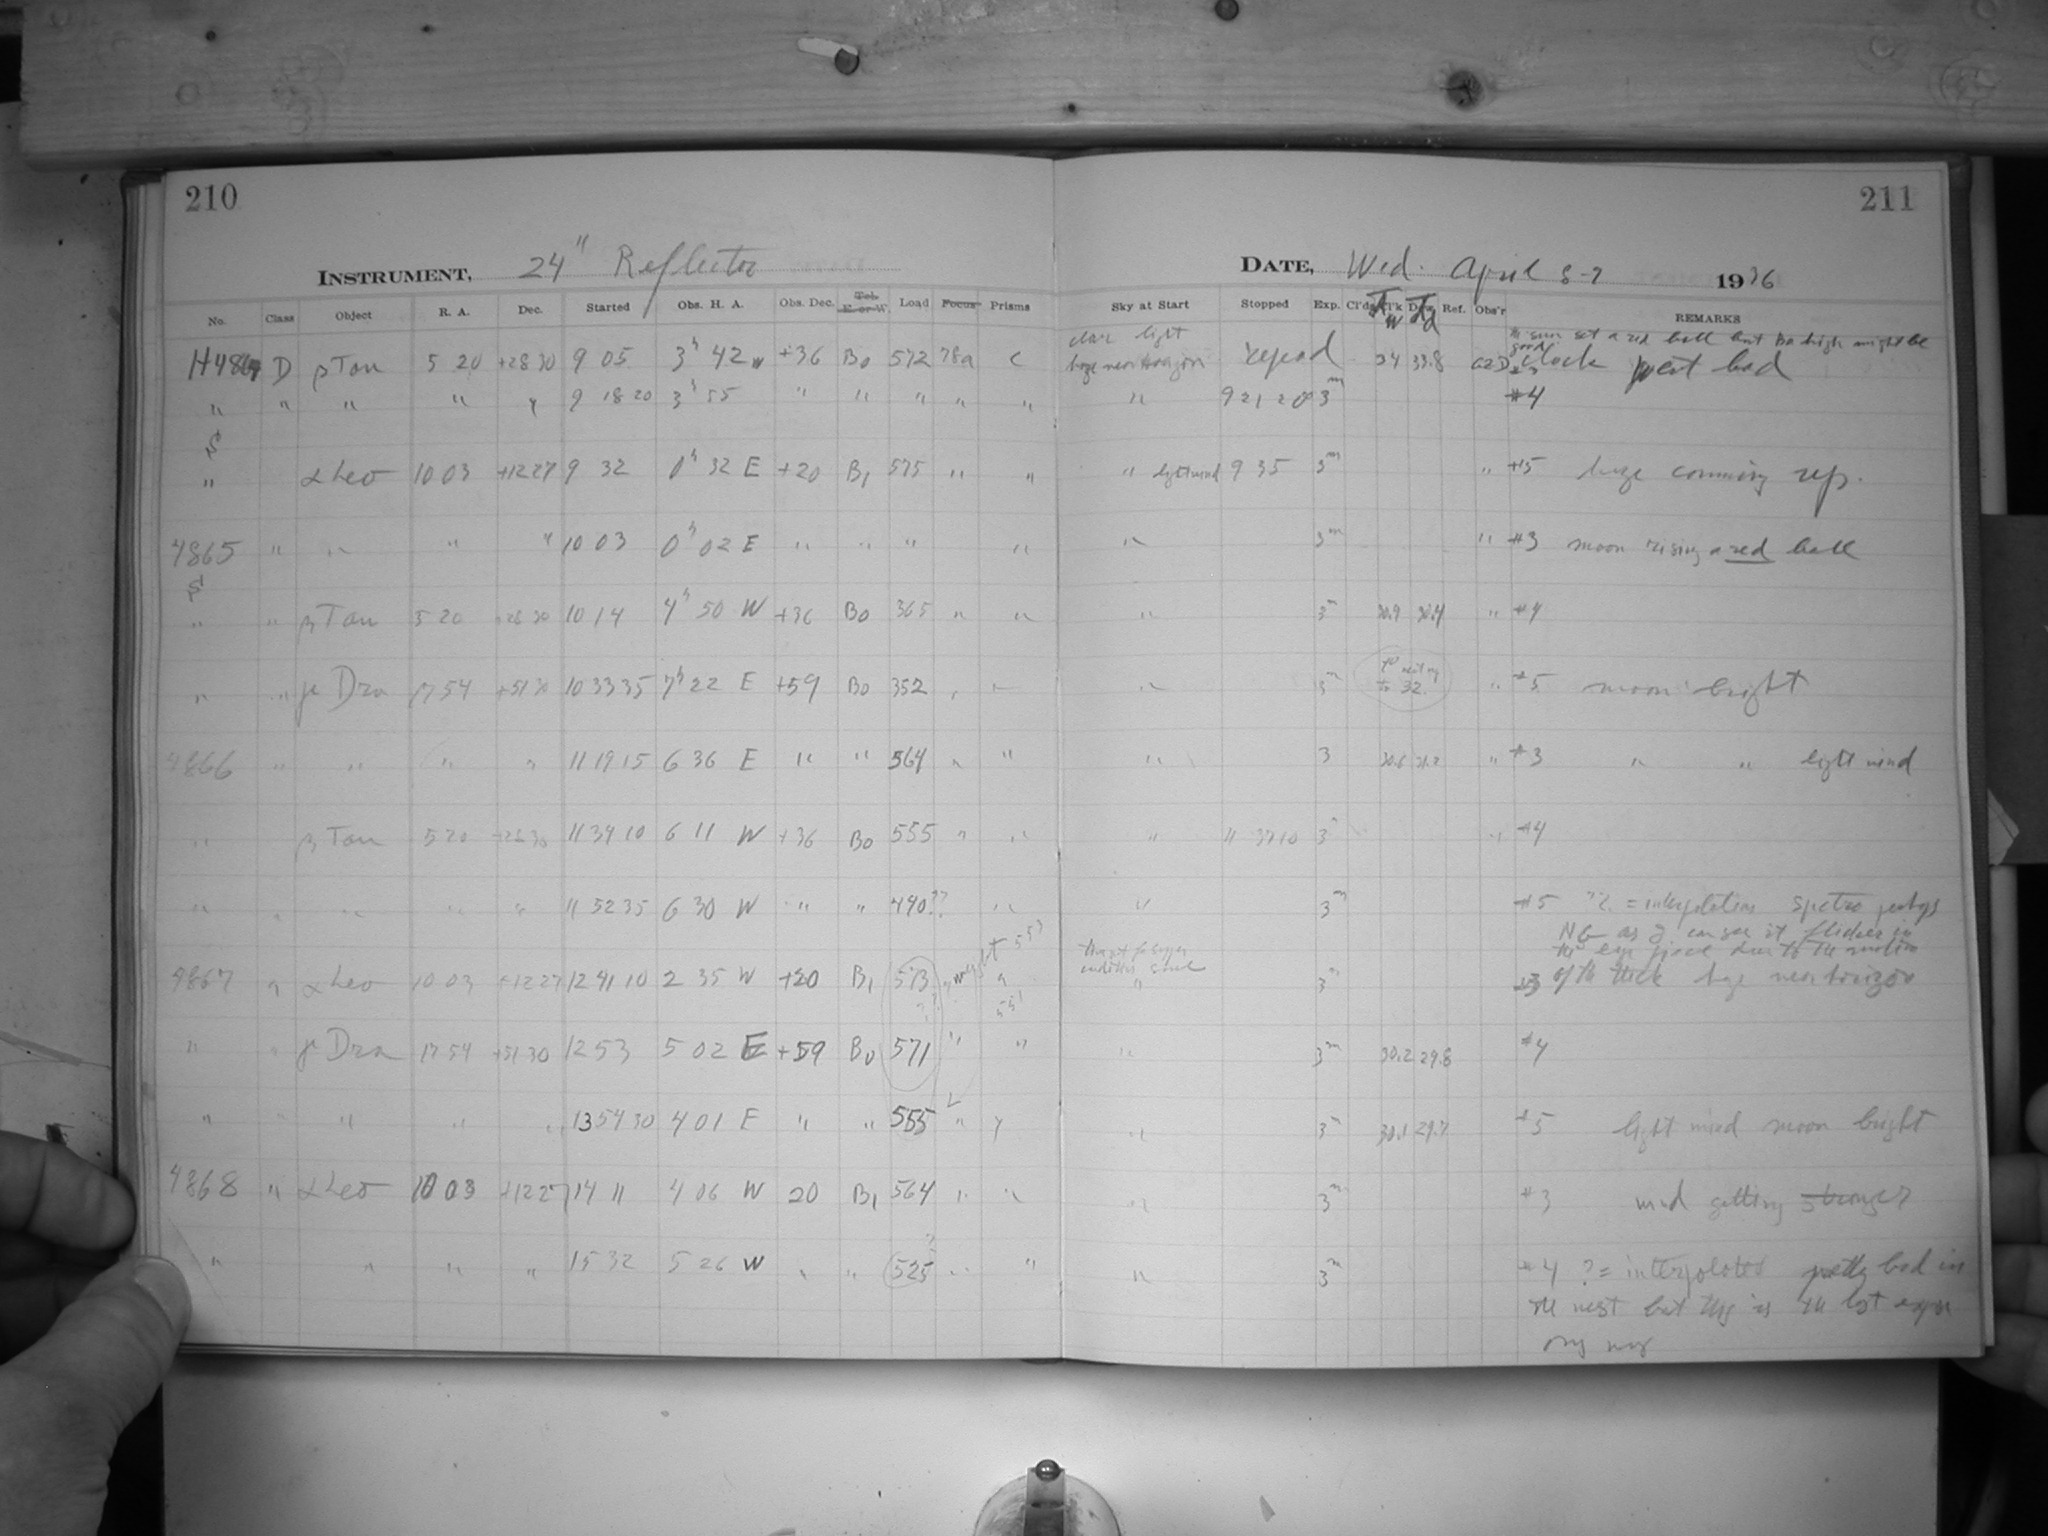 210
211
INSTRUMENT, 24" Reflector
DATE, Wed. April 8-9 1936
No. Class Object R. A. Dec. Started Obs. H. A. Obs. Dec. Tel. E. or W. Load Focus Prisms
Sky at Start Stopped Exp. Cl'ds Cl'k Dew Ref. Obs'r REMARKS
Tw Td
the sun set a red ball but Bo high might be
good
H4864 D β Tau 5 20 +28 30 9 05 3h 42 w +36 B0 572 78a C clear light haze near horizon repeat 34 33.8 clock went bad
" " " " " 9 18 20 3h 55 " " " " " " 9 21 20 3m #4
" α Leo 10 03 +12 27 9 32 0h 32 E +20 B1 575 " " " light wind 9 35 3m " #5 haze comming up.
4865 " " " " 10 03 0h 02 E " " " " " 3m " #3 moon rising a red ball
" " β Tau 5 20 +28 30 10 14 4h 50 W +36 B0 365 " " " 3m 30.9 30.4 " #4
" " γ Dra 17 54 +51 30 10 33 35 7h 22 E +59 B0 352 " " " 3m to 32. " #5 moon bright
4866 " " " " 11 19 15 6 36 E " " 564 " " " 3 30.6 31.2 " #3 " " light wind
" β Tau 5 20 +28 30 11 34 10 6 11 W +36 B0 555 " " " 11 37 10 3m " #4
" " " " " 11 52 35 6 30 W " " 440?? " " 3m #5 ?? = interpolation spectro perhaps
NG as I can see it flicker in
the eye piece due to the motion
of the thick haze near horizon
4867 " α Leo 10 03 +12 27 12 41 10 2 35 W +20 B1 573 ?? " might 553 " 551 " 3m #3
" " γ Dra 17 54 +51 30 12 53 5 02 E +59 B0 571 " " " 3m 30.2 29.8 #4
" " " " " 13 54 30 4 01 E " " 555 " " " 3m 30.1 29.7 #5 light wind moon bright
4868 " α Leo 10 03 +12 27 14 11 4 06 W 20 B1 564 " " " 3m #3 wind getting stronger
" " " " 15 32 5 26 W " " 525 ? " " " 3m #4 ? = interpolated pretty bad in
the west but this is the last expo
any way